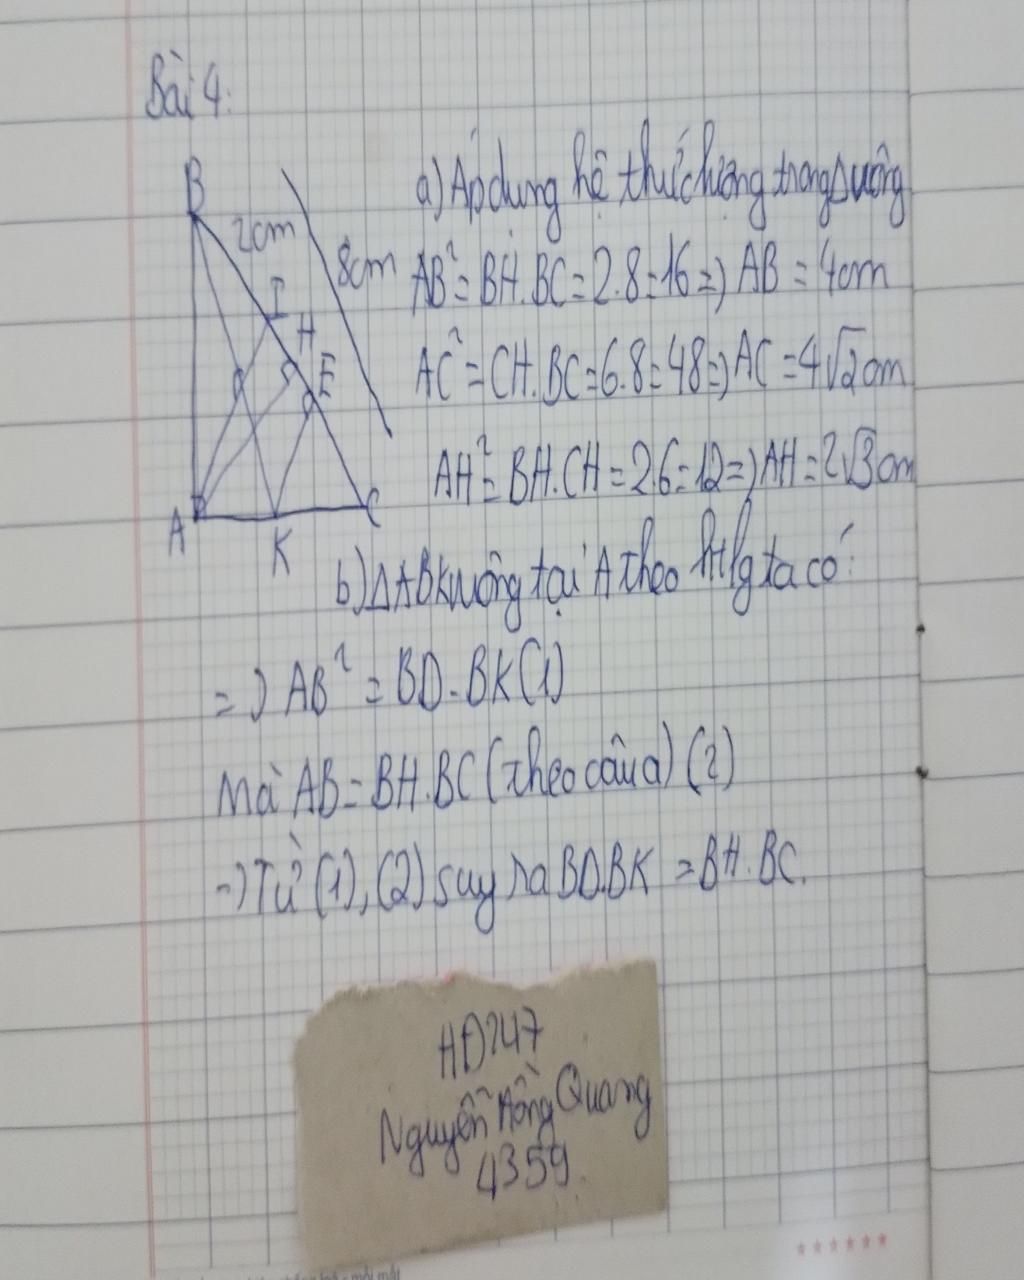 Bài 4:
B
2cm
8cm
I
H
E
A
K
C
a) Áp dụng hệ thức lượng trong Δ vuông
AB² = BH.BC = 2.8 = 16 => AB = 4cm
AC² = CH.BC = 6.8 = 48 => AC = 4√2cm
AH² = BH.CH = 2.6 = 12 => AH = 2√3cm
b) ΔABK vuông tại A theo httlg ta có:
=> AB² = BD.BK (1)
Mà AB = BH.BC (theo câu a) (2)
-> Từ (1), (2) suy ra BD.BK = BH.BC.
HĐ247
Nguyễn Hồng Quang
4359